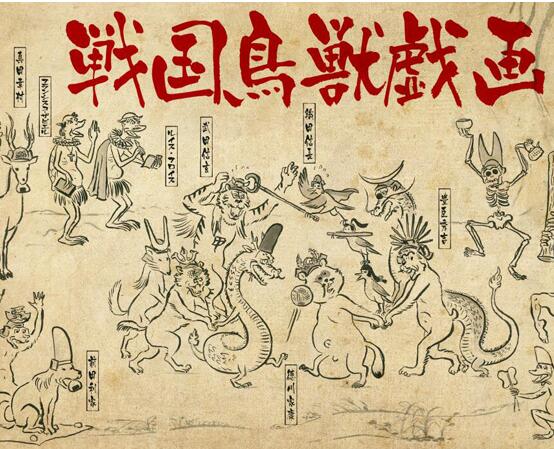 戦国鳥獣戯画
真田幸村
フランシスコ・ザビエル
ルイス・フロイス
武田信玄
織田信長
豊臣秀吉
前田利家
徳川家康